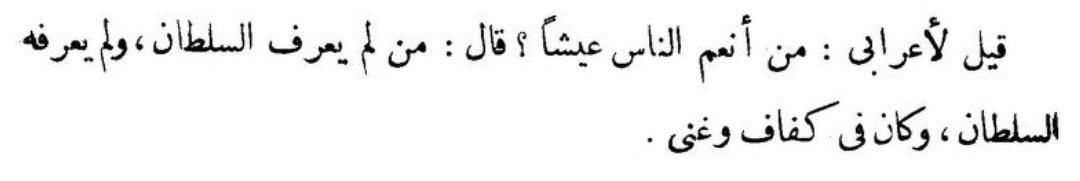 قيل لأعرابى : من أنعم الناس عيشاً ؟ قال : من لم يعرف السلطان ، ولم يعرفه
السلطان ، وكان فى كفاف وغنى .